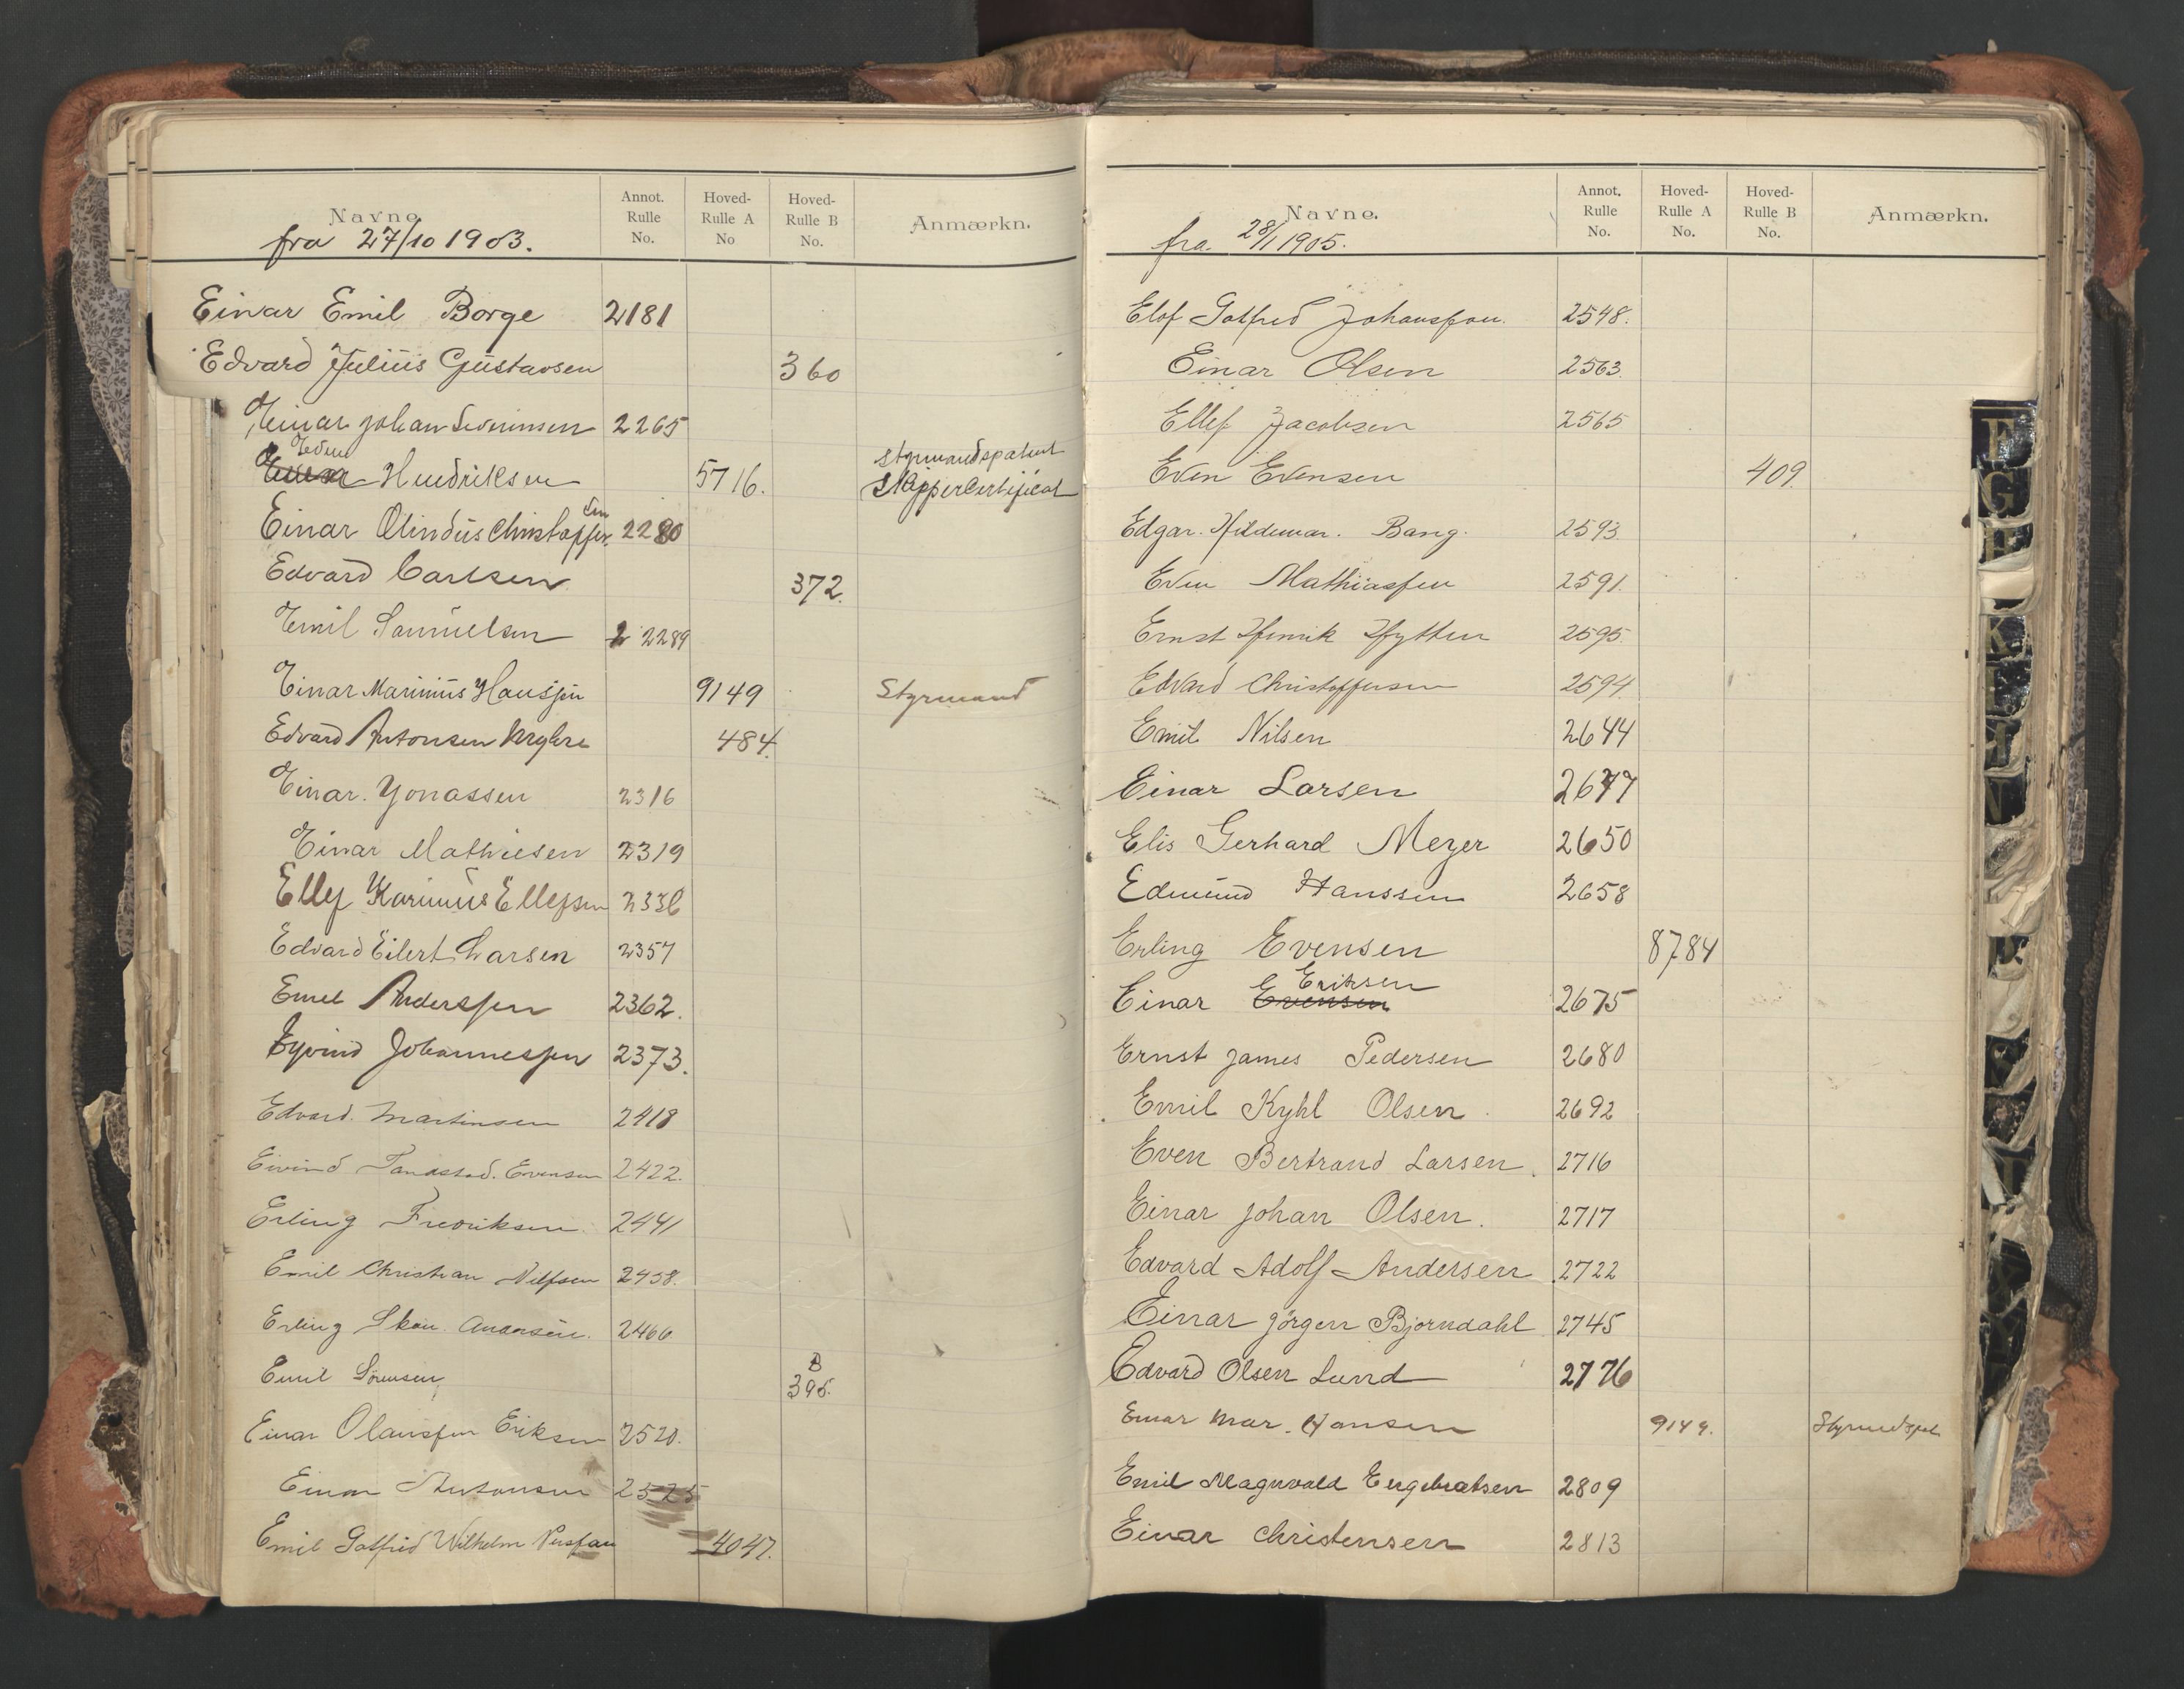 Navne
Annot. Rulle No.
Hoved-Rulle A No
Hoved-Rulle B No.
Anmærkn.
fra 27/10 1903.
Einar Emil Borge 2181
Edvard Julius Gustavsen 360
Einar Johan Severinsen 2265
Edvin Hendriksen 5716. Styrmandspatent Skippercertificat
Einar Olindus Christoffersen 2280
Edvard Carlsen 372.
Emil Samuelsen 2289
Einar Marinius Hanssen 9149 Styrmand
Edvard Antonsen Myhre 484.
Einar. Jonassen 2316
Einar Mathiesen 2319
Ellef Karinius Ellefsen 2336
Edvard Eilert Larsen 2357
Emil Anderssen 2362.
Eyvind Johannessen 2373.
Edvard. Martinsen 2418
Eivind Tandstad. Evensen 2422.
Erling Fredriksen 2441
Emil Christian Nilssen 2458.
Erling Skau Amandsen. 2466
Emil Sörensen B 395.
Einar Olaussen Eriksen 2520.
Einar Antonsen 2525
Emil Gotfrid Wilhelm Perssan 4047.
Navne.
Annot. Rulle No.
Hoved-Rulle A No.
Hoved-Rulle B No.
Anmærkn.
fra. 28/1 1905.
Elof Gotfred Johanssen. 2548.
Einar Olsen 2563.
Ellef Jacobsen 2565
Even Evensen 409.
Edgar. Hildemar. Bang. 2593.
Even Mathiassen 2591.
Ernst Henrik Hytten 2595.
Edvard Christoffersen 2594.
Emil Nilsen 2644
Einar Larsen 2647
Elis Gerhard Meyer 2650
Edmund Hanssen 2658
Erling Evensen 8784
Einar Evensen Eriksen 2675
Ernst James Pedersen 2680
Emil Kyhl Olsen. 2692
Even Bertrand Larsen. 2716
Einar Johan Olsen. 2717
Edvard Adolf Andersen 2722
Einar Jörgen Bjorndahl 2745
Edvard Olsen Lund 2776
Einar Mar. Hansen 9149. Styrmdspat
Emil Magnvald Engebretsen 2809
Einar Christensen 2813
F
G
H
K
L
N